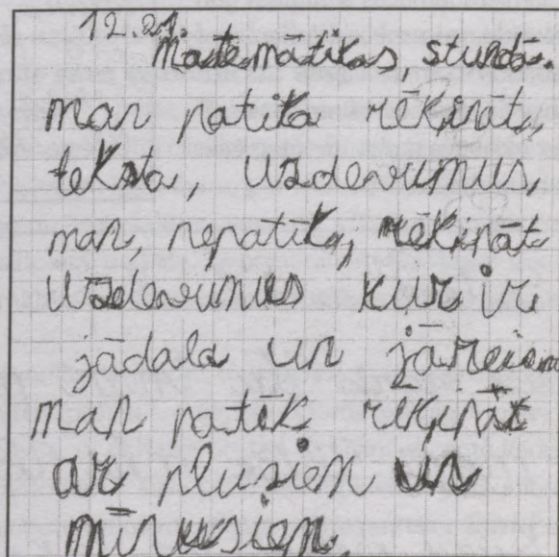 12.21.
Matemātikas, stundā.
man patika rēķināt,
teksta, uzdevumus,
man, nepatika, rēķināt
uzdevumus kur ir
jādala un jāreizina
man patīk rēķināt
ar plusiem un
mīnusiem